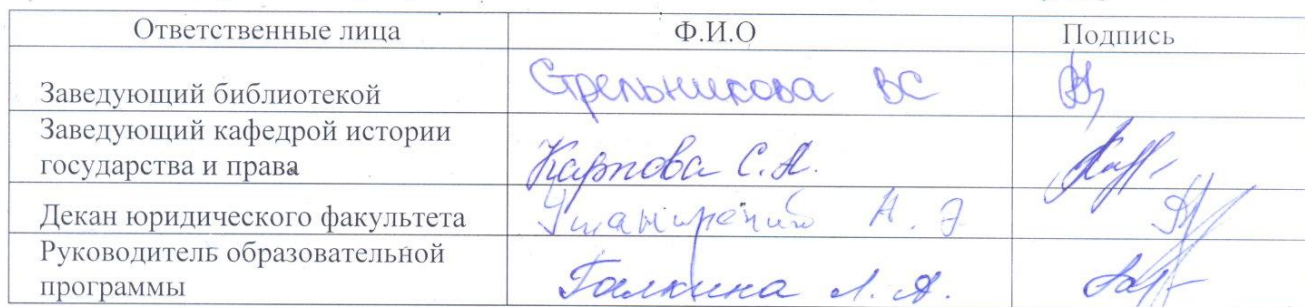 Ответственные лица Ф.И.О Подпись
Заведующий библиотекой Стрельникова ВС
Заведующий кафедрой истории
государства и права Карпова С.А.
Декан юридического факультета А. Э
Руководитель образовательной
программы Галкина Л. А.